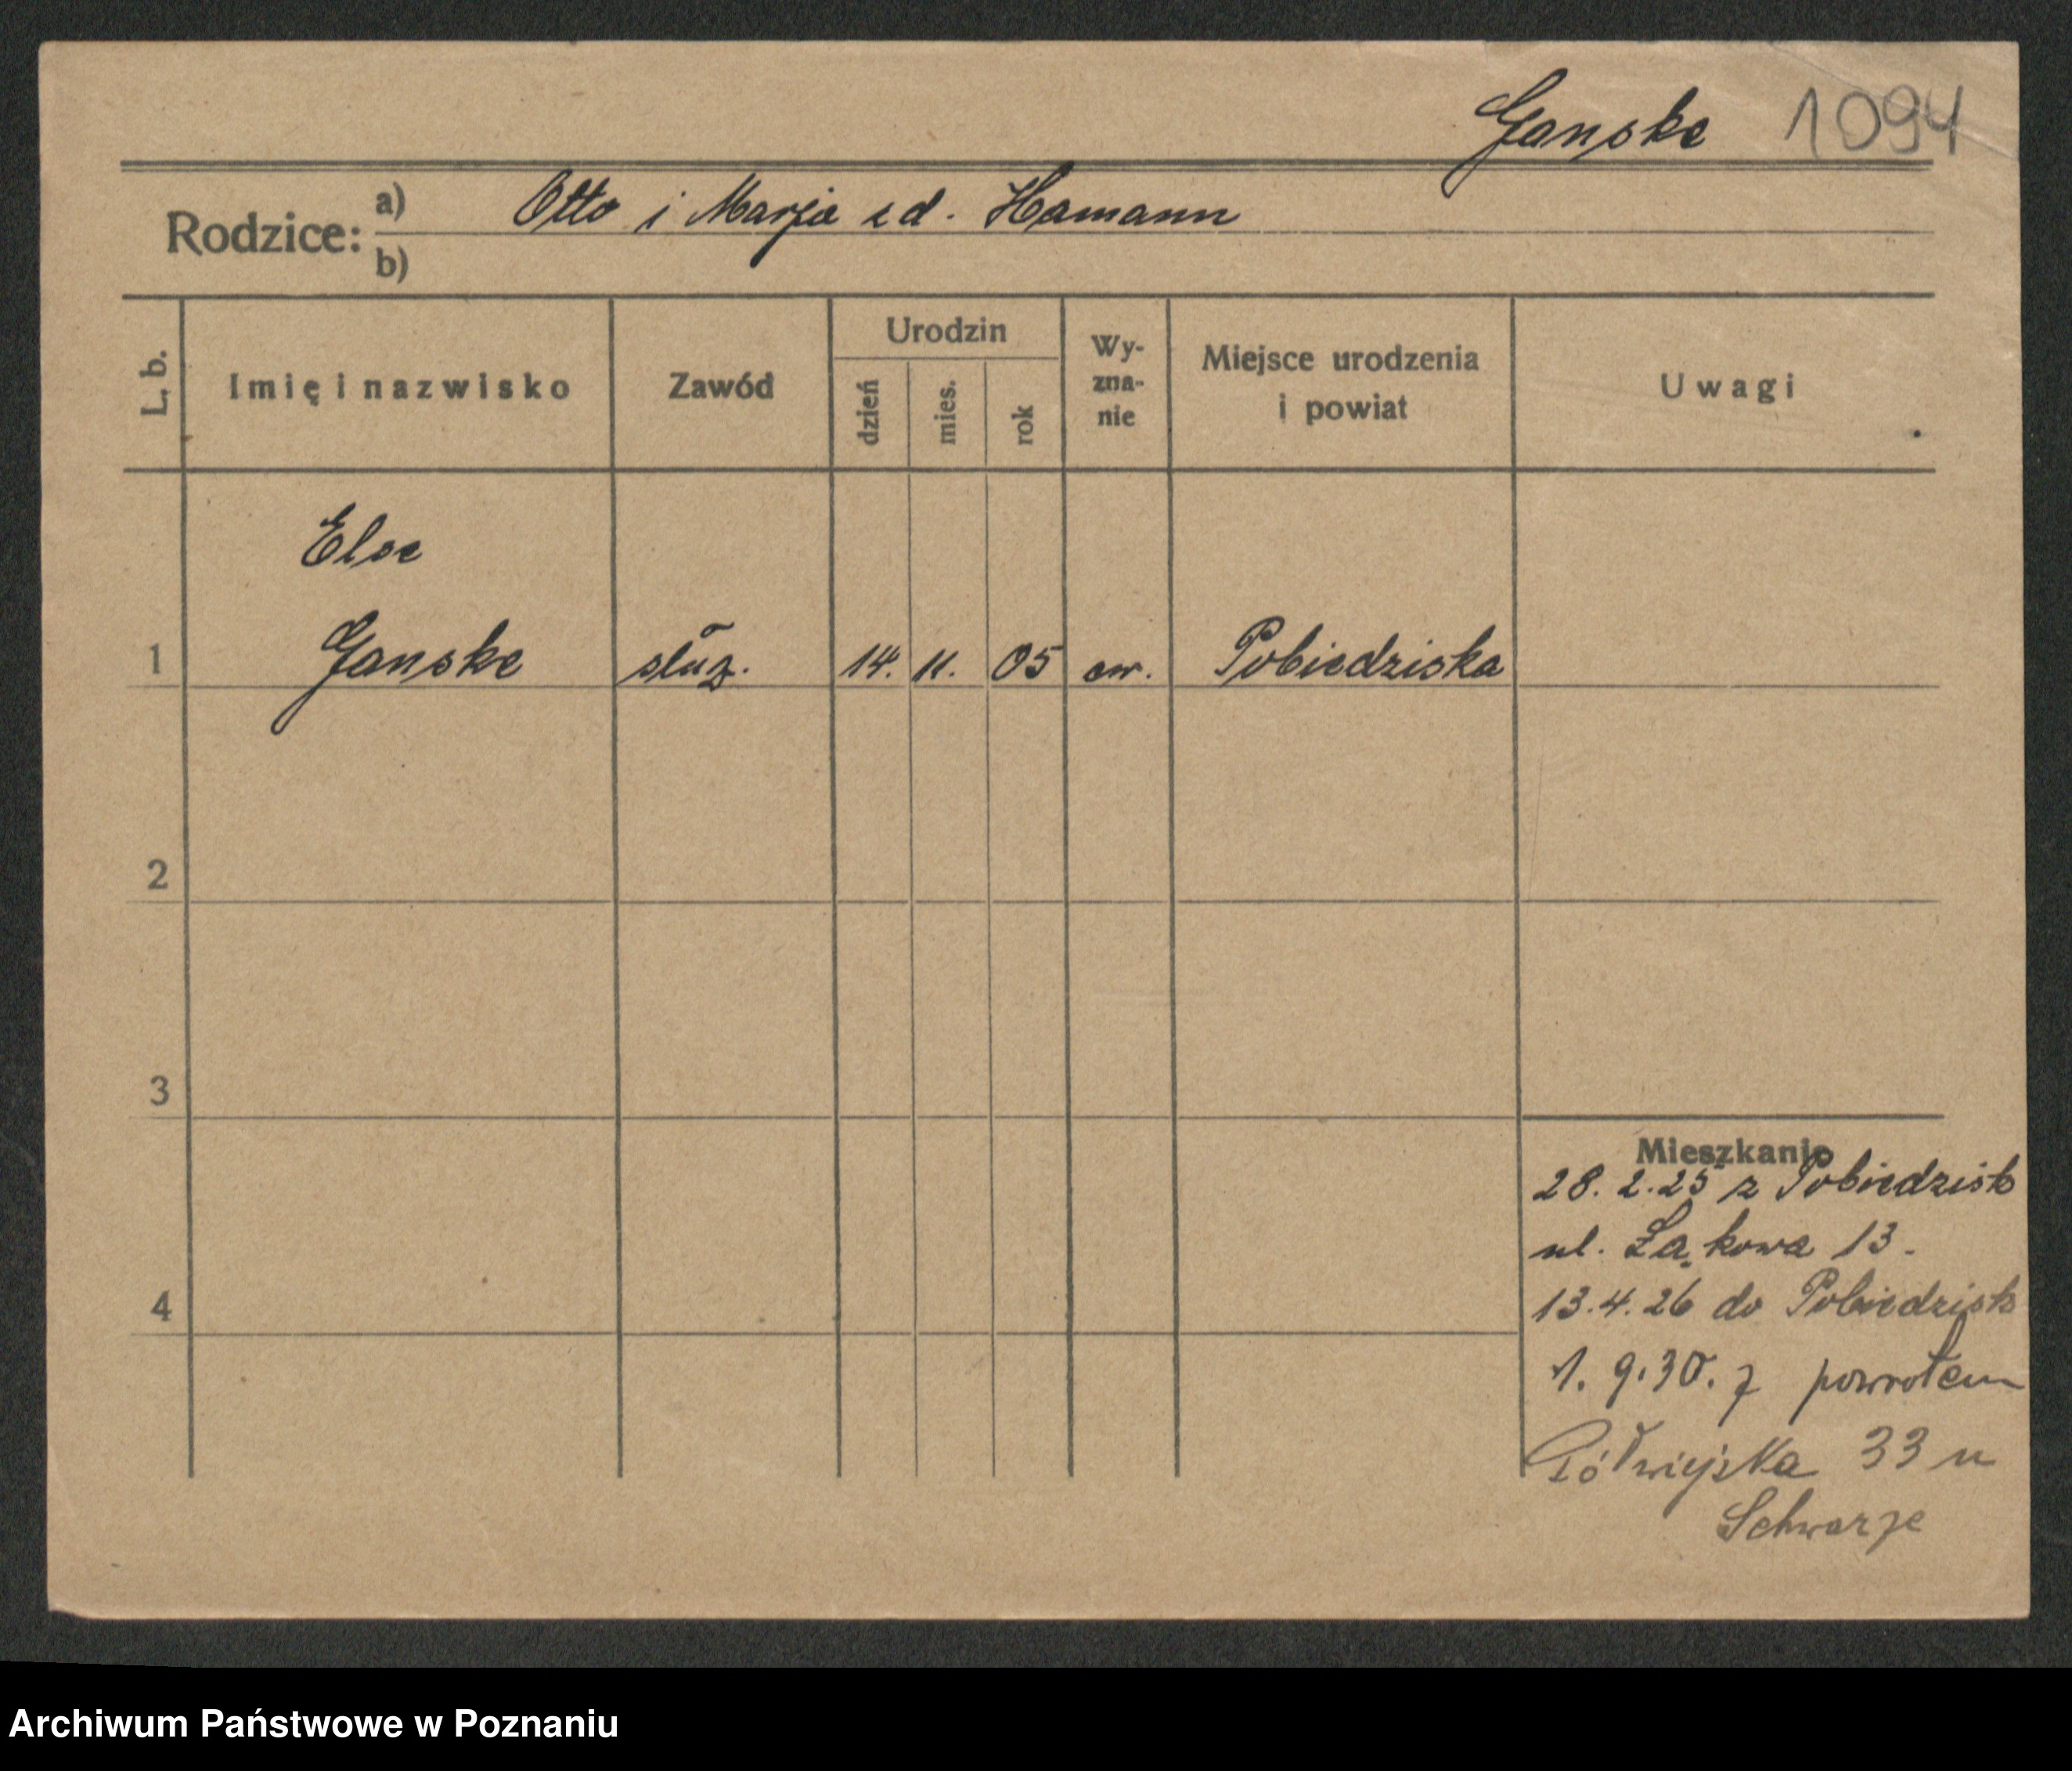 Ganske 1094
Rodzice: a) Otto i Marja zd. Hamann
b)
L. b.
Imię i nazwisko
Zawód
Urodzin
dzień
mies.
rok
Wy-
zna-
nie
Miejsce urodzenia
i powiat
Uwagi
Else
1 Ganske służ. 14. 11. 05 ew. Pobiedziska
2
3
Mieszkanie
28. 2. 25 z Pobiedzisk
ul. Łąkowa 13.
4
13. 4. 26 do Pobiedzisk
1. 9. 30. z powrotem
Półwiejska 33 u
Schwarze
Archiwum Państwowe w Poznaniu